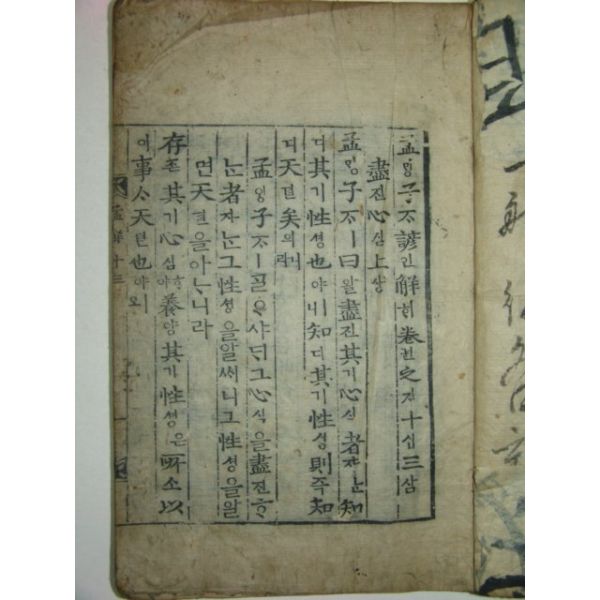 孟ᄆᆡᆼ子ᄌᆞ諺언解ᄒᆡ卷권之지十십三삼
盡진心심上샹
孟ᄆᆡᆼ子ᄌᆞㅣ曰왈盡진其기心심者쟈ᄂᆞᆫ知
디其기性셩也야ㅣ니知디其기性셩則즉知
디天텬矣의니라
孟ᄆᆡᆼ子ᄌᆞㅣᄀᆞᆯᄋᆞ샤ᄃᆡ그心심을盡진ᄒᆞ
ᄂᆞᆫ者쟈ᄂᆞᆫ그性셩을알써니그性셩을알
면天텬을아ᄂᆞ니라
存존其기心심ᄒᆞ야養양其기性셩은所소以
이事ᄉᆞ天텬也야ㅣ오
孟解十三 一